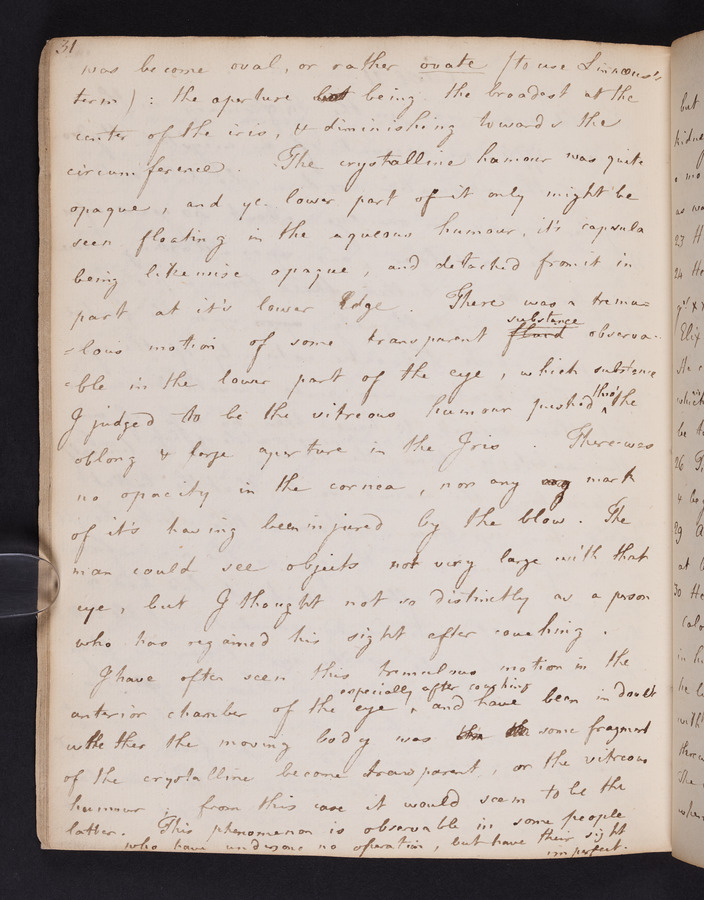 31
was become oval, or rather ovate (to use Linnæus's
term): the aperture being the broadest at the
center of the iris, & diminishing towards the
circumference. The crystalline humour was quite
opaque, and ye. lower part of it only might be
seen floating in the aqueous humour, it's capsula
being likewise opaque, and detached from it in
part at it's lower Edge. There was a tremu=
=lous motion of some transparent fluid substance observa=
=ble in the lower part of the eye, which substance
I judged to be the vitreous humour pushed thro' the
oblong & large aperture in the Iris. There was
no opacity in the cornea, nor any mark
of it's having been injured by the blow. The
man could see objects not very large with that
eye, but I thought not so distinctly as a person
who has regained his sight after couching.
I have often seen this tremulous motion in the
anterior chamber of the eye, especially after couching and have been in doubt
whether the moving body was some fragment
of the crystalline become transparent, or the vitreous
humour; from this case it would seem to be the
latter. This phenomenon is observable in some people
who have undergone no operation, but have their sight
imperfect.
but
23 H
24 He
Elix
26
29
30 He